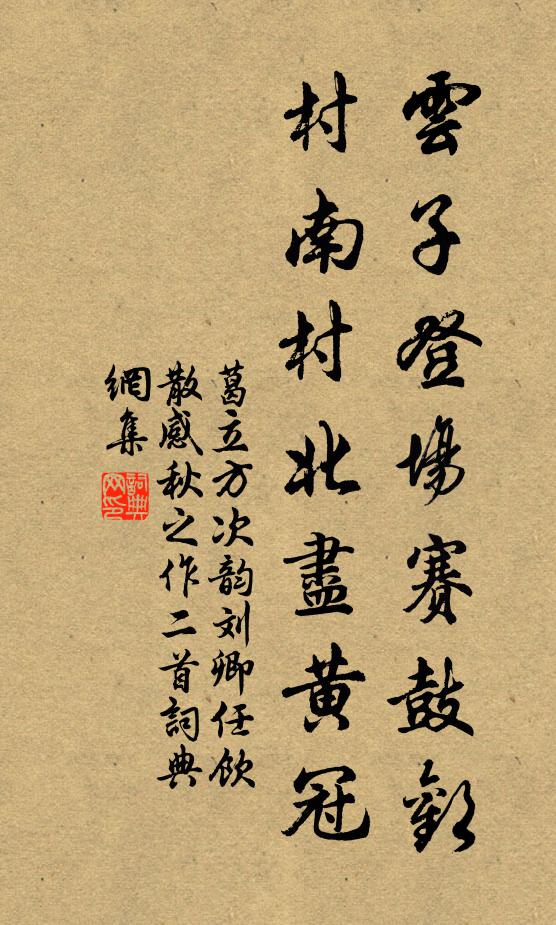 雲子登場賽鼓歡
村南村北盡黄冠
葛立方次韵刘卿任饮
散感秋之作二首詞典
網集
詞典
网印